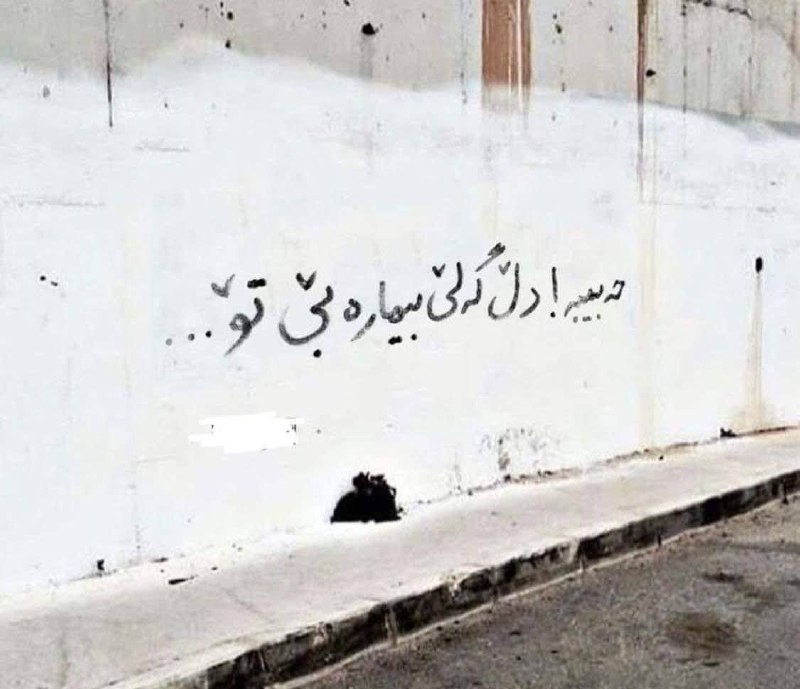 حەبیبە! دڵ گەلێ بیمارە بێ تۆ...